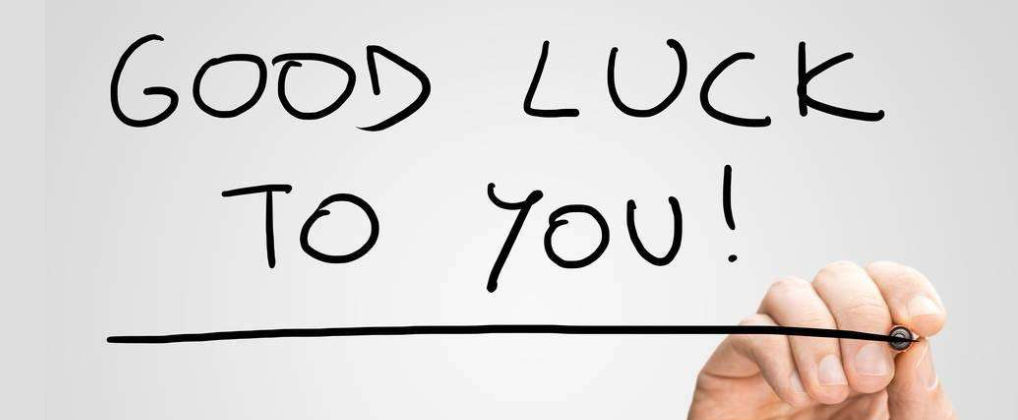 GOOD LUCK
TO YOU!